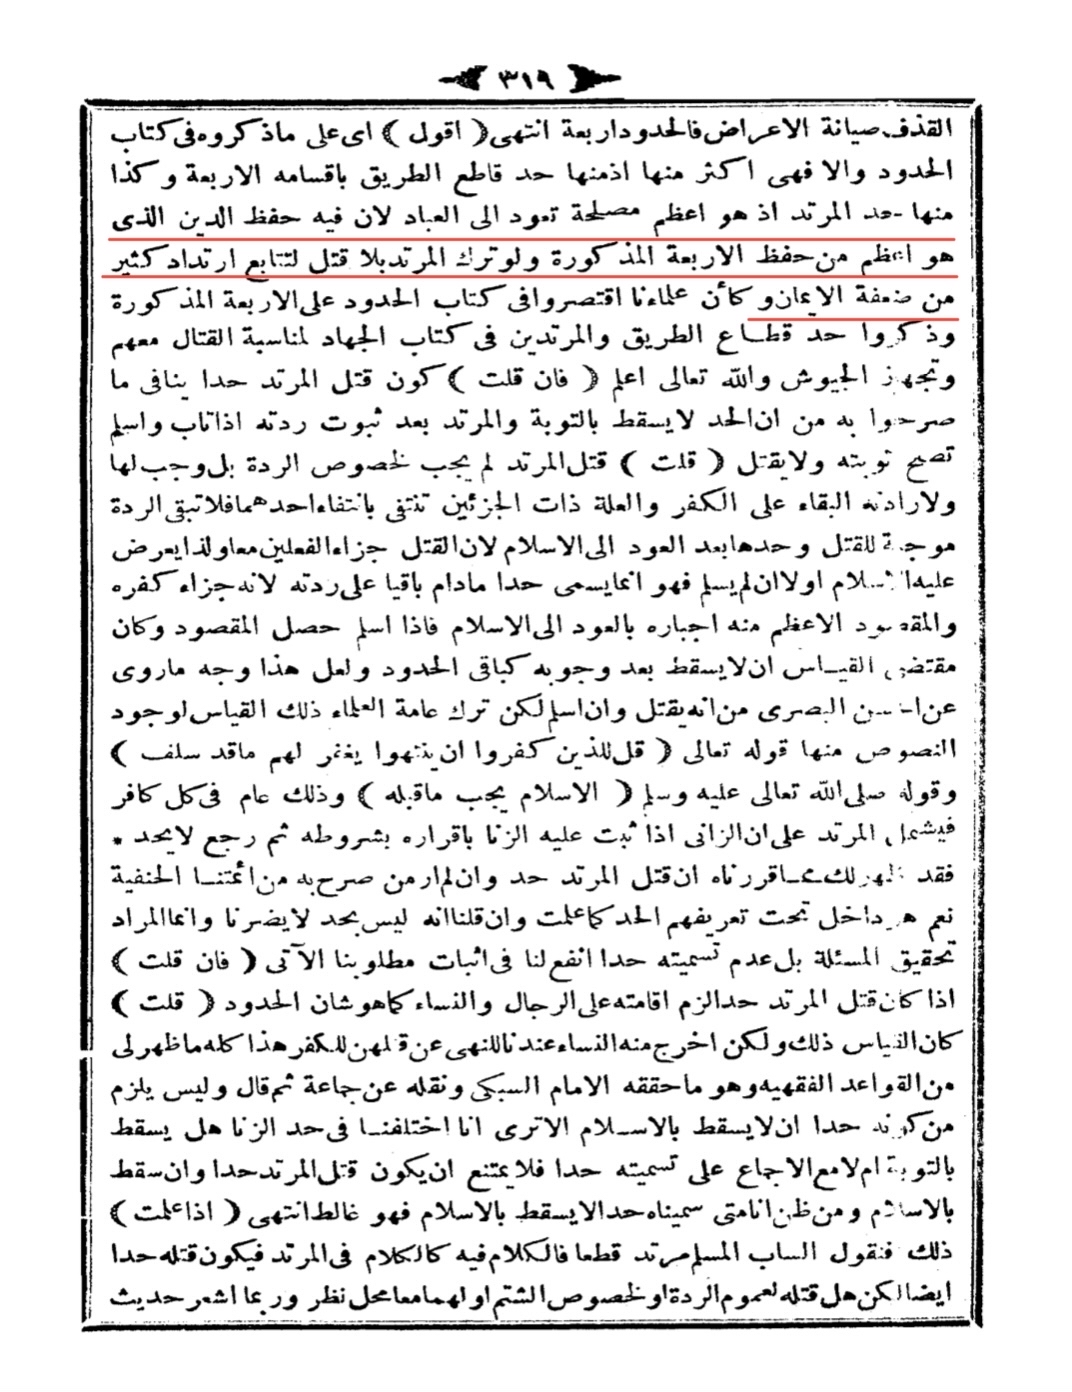 ٣١٩
القذف صيانة الاعراض فالحدود اربعة انتهى ( اقول ) اى على ماذكروه فى كتاب
الحدود والا فهى اكثر منها اذمنها حد قاطع الطريق باقسامه الاربعة وكذا
منها حد المرتد اذ هو اعظم مصلحة تعود الى العباد لان فيه حفظ الدين الذى
هو اعظم من حفظ الاربعة المذكورة ولو ترك المرتد بلا قتل لتتابع ارتداد كثير
من ضعفة الايمان و كأن علماءنا اقتصروا فى كتاب الحدود على الاربعة المذكورة
وذكروا حد قطاع الطريق والمرتدين فى كتاب الجهاد لمناسبة القتال معهم
وتجهيز الجيوش والله تعالى اعلم ( فان قلت ) كون قتل المرتد حدا ينافى ما
صرحوا به من ان الحد لا يسقط بالتوبة والمرتد بعد ثبوت ردته اذا تاب واسلم
تصح توبته ولا يقتل ( قلت ) قتل المرتد لم يجب لخصوص الردة بل وجب لها
ولارادته البقاء على الكفر والعلة ذات الجزئين تنتفى بانتفاء احدهما فلا تبقى الردة
موجبة للقتل وحدها بعد العود الى الاسلام لان القتل جزاء الفعلين معا ولذا يعرض
عليه الاسلام اولا ان لم يسلم فهو انما يسمى حدا مادام باقيا على ردته لانه جزاء كفره
والمقصود الاعظم منه اجباره بالعود الى الاسلام فاذا اسلم حصل المقصود وكان
مقتضى القياس ان لا يسقط بعد وجوبه كباقى الحدود ولعل هذا وجه ماروى
عن الحسن البصرى من انه يقتل وان اسلم لكن ترك عامة العلماء ذلك القياس لوجود
النصوص منها قوله تعالى ( قل للذين كفروا ان ينتهوا يغفر لهم ماقد سلف )
وقوله صلى الله تعالى عليه وسلم ( الاسلام يجب ماقبله ) وذلك عام فى كل كافر
فيشمل المرتد على ان الزانى اذا ثبت عليه الزنا باقراره بشروطه ثم رجع لا يحد *
فقد ظهر لك مما قررناه ان قتل المرتد حد وان لم ار من صرح به من ائمتنا الحنفية
نعم هو داخل تحت تعريفهم الحد كما علمت وان قلنا انه ليس بحد لا يضرنا وانما المراد
تحقيق المسئلة بل عدم تسميته حدا انفع لنا فى اثبات مطلوبنا الآتى ( فان قلت )
اذا كان قتل المرتد حدا لزم اقامته على الرجال والنساء كما هو شان الحدود ( قلت )
كان القياس ذلك ولكن اخرج منه النساء عندنا للنهى عن قتلهن للكفر هذا كله ماظهر لى
من القواعد الفقهيه وهو ماحققه الامام السبكى ونقله عن جماعة ثم قال وليس يلزم
من كونه حدا ان لا يسقط بالاسلام الا ترى انا اختلفنا فى حد الزنا هل يسقط
بالتوبة ام لا مع الاجماع على تسميته حدا فلا يمتنع ان يكون قتل المرتد حدا وان سقط
بالاسلام ومن ظن انا متى سميناه حدا لا يسقط بالاسلام فهو غالط انتهى ( اذا علمت )
ذلك فنقول الساب المسلم مرتد قطعا فالكلام فيه كالكلام فى المرتد فيكون قتله حدا
ايضا لكن هل قتله لعموم الردة او لخصوص الشتم او لهما معا محل نظر وربما اشعر حديث